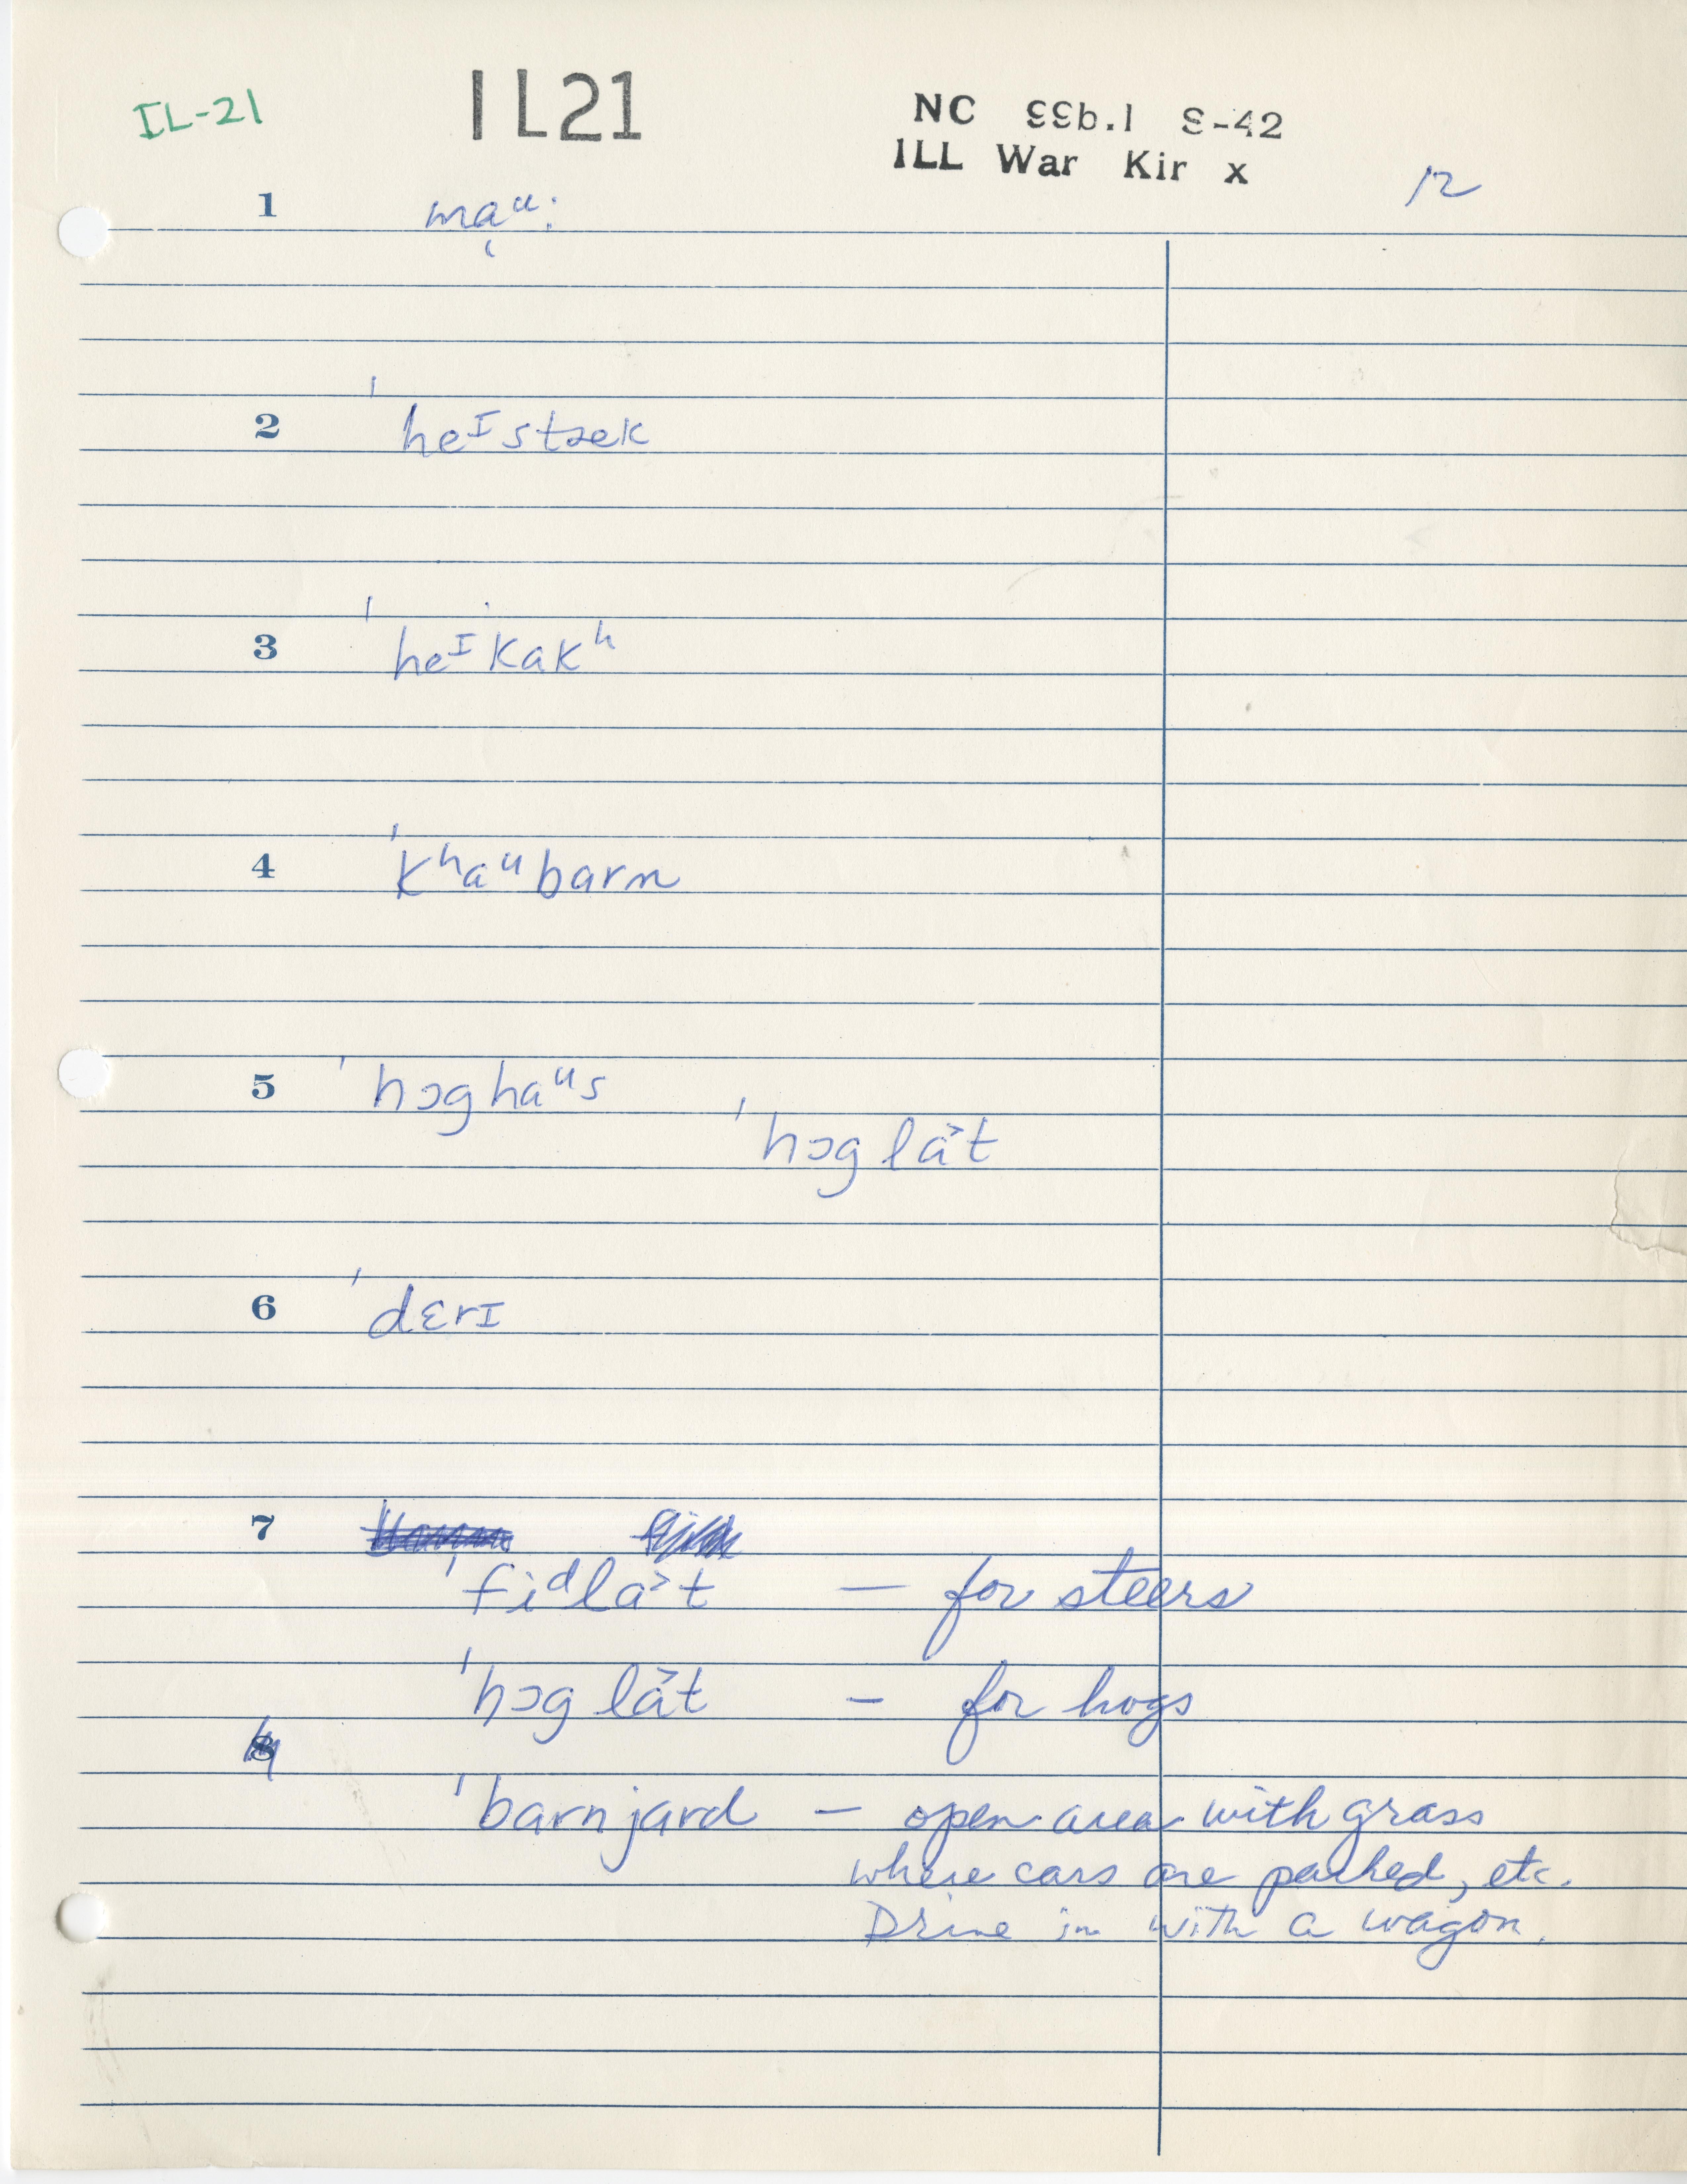 IL-21 IL21 NC 99b.1 S-42
ILL War Kir x
12
1 ma̜ᵘ:
2 'heᴵstæk
3 'heᴵkakʰ
4 'kʰaᵘbarn
5 'hɔghaᵘs
'hɔgla˃t
6 'dɛrɪ
7
'fiᵈla˃t — for steers
'hɔgla˃t — for hogs
8
'barnjard — open area with grass
where cars are parked, etc.
Drive in with a wagon.